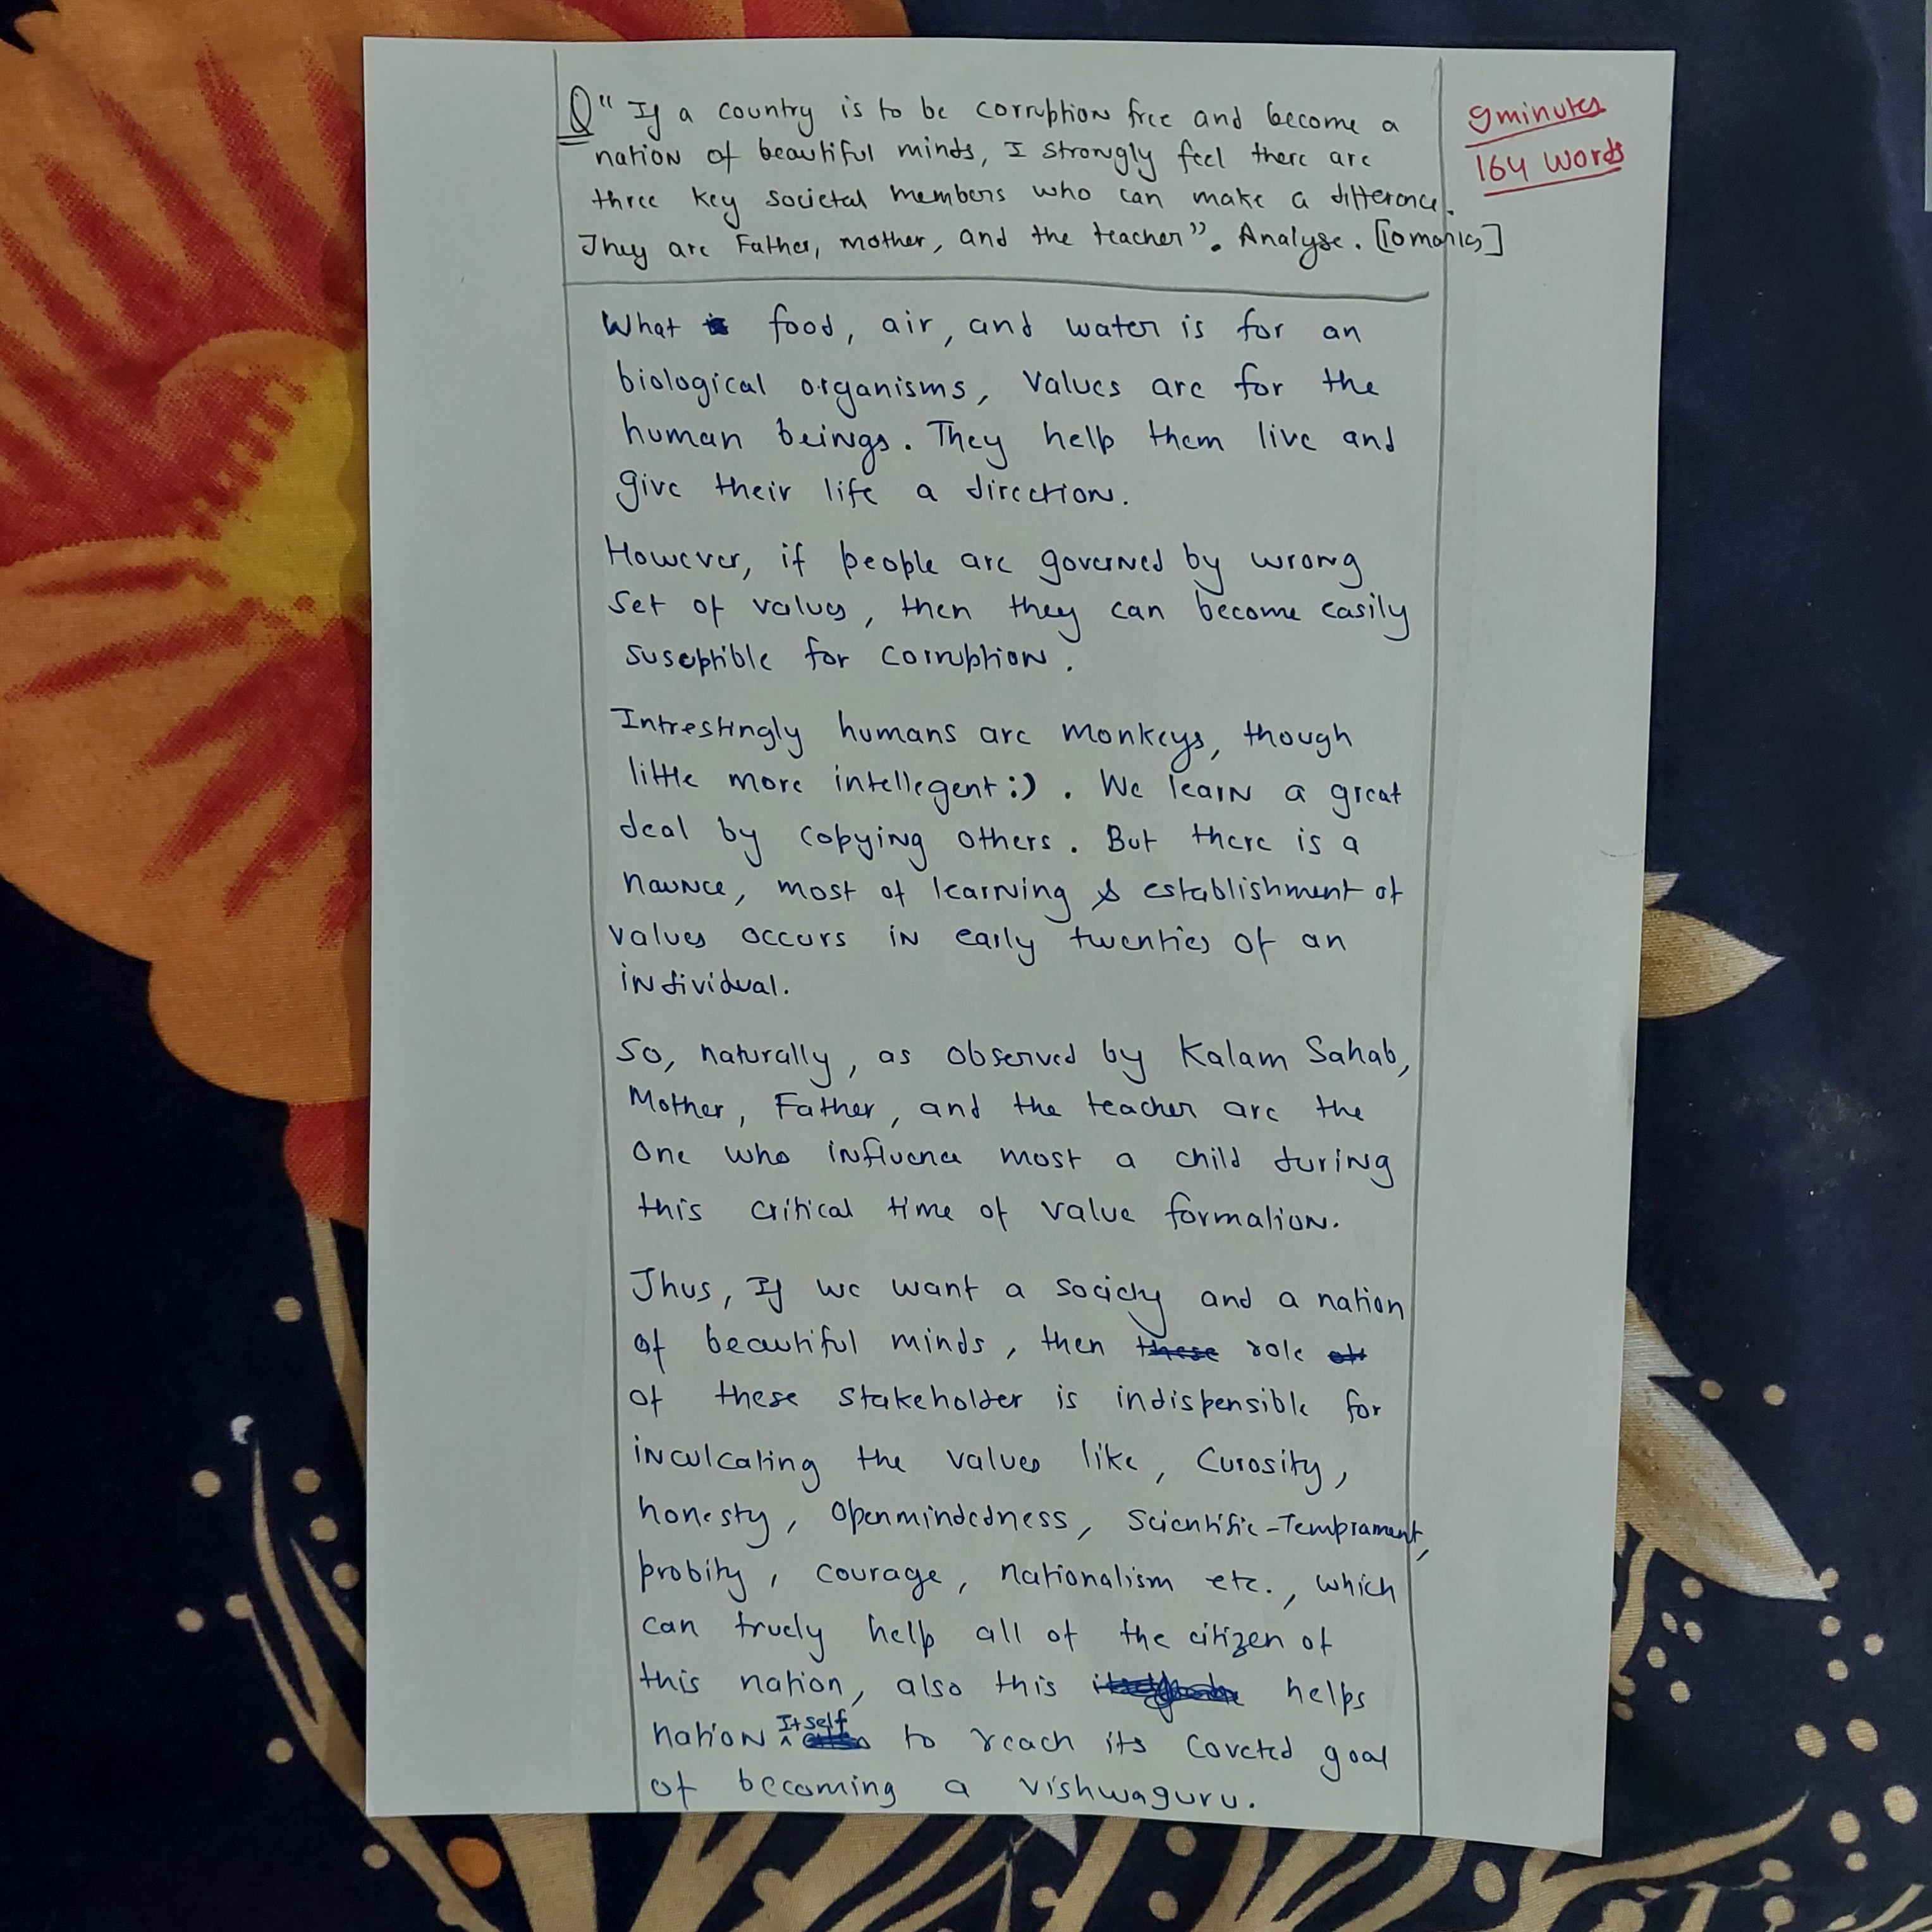 Q "If a country is to be corruption free and become a
nation of beautiful minds, I strongly feel there are
three key societal members who can make a difference.
They are Father, mother, and the teacher". Analyse. [10 marks]
9 minutes
164 words
What food, air, and water is for an
biological organisms, values are for the
human beings. They help them live and
give their life a direction.
However, if people are governed by wrong
set of values, then they can become easily
suseptible for corruption.
Intrestingly humans are monkeys, though
little more intellegent :) . We learn a great
deal by copying others. But there is a
naunce, most of learning & establishment of
values occurs in early twenties of an
individual.
So, naturally, as observed by Kalam Sahab,
Mother, Father, and the teacher are the
one who influence most a child during
this critical time of value formation.
Thus, If we want a society and a nation
of beautiful minds, then these role of
of these stakeholder is indispensible for
inculcating the values like, Curosity,
honesty, Openmindedness, Scientific-Temprament,
probity, courage, nationalism etc., which
can truely help all of the citizen of
this nation, also this helps
nation Itself to reach its coveted goal
of becoming a vishwaguru.